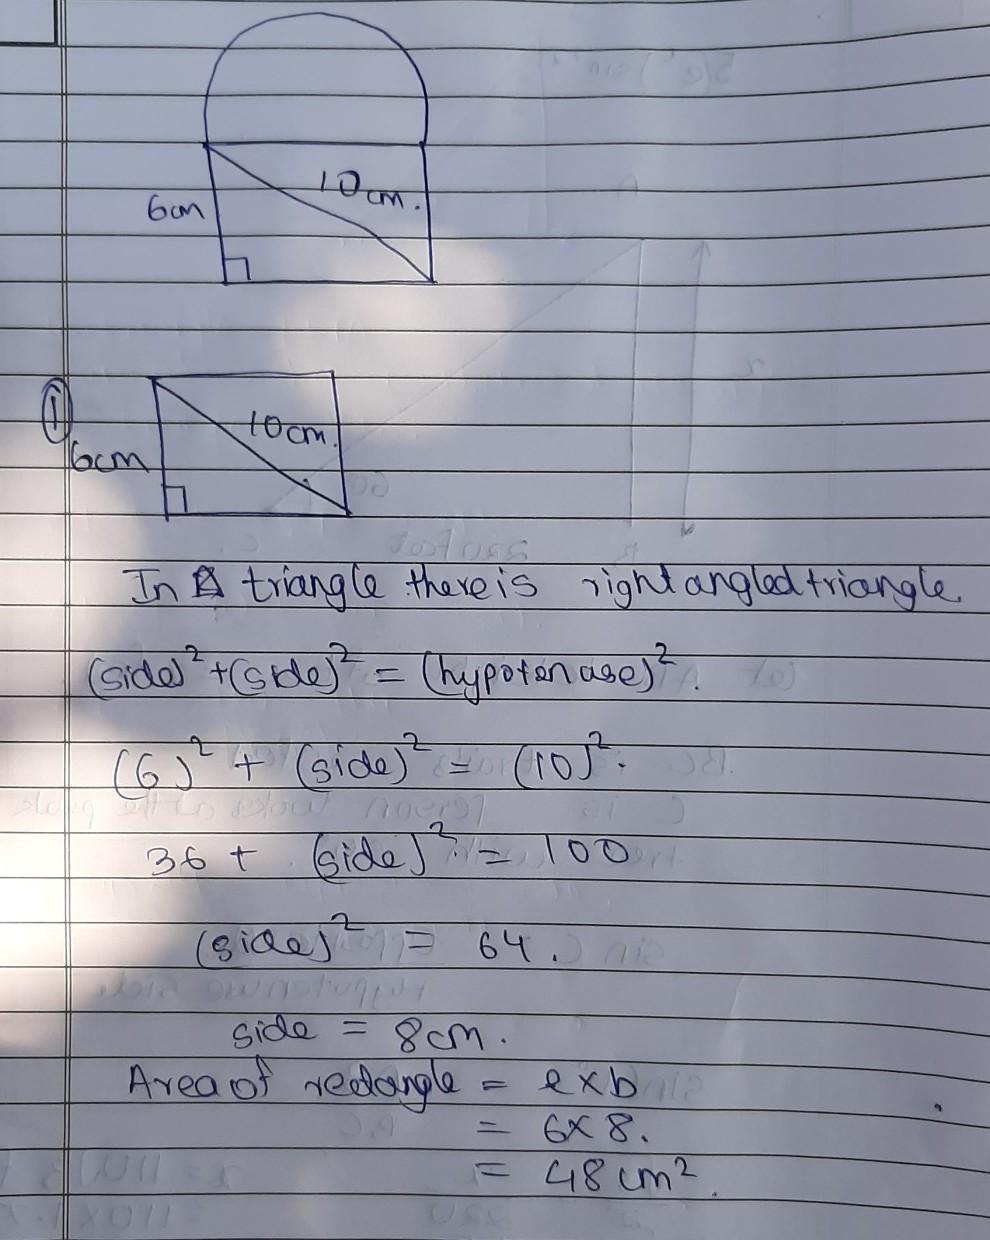 10cm.
6cm
i
10cm.
6cm
In triangle there is right angled triangle
(side)² + (side)² = (hypotenuse)².
(6)² + (side)² = (10)².
36 + (side)² = 100
(side)² = 64.
side = 8cm.
Area of rectangle = l x b
= 6 x 8.
= 48 cm².